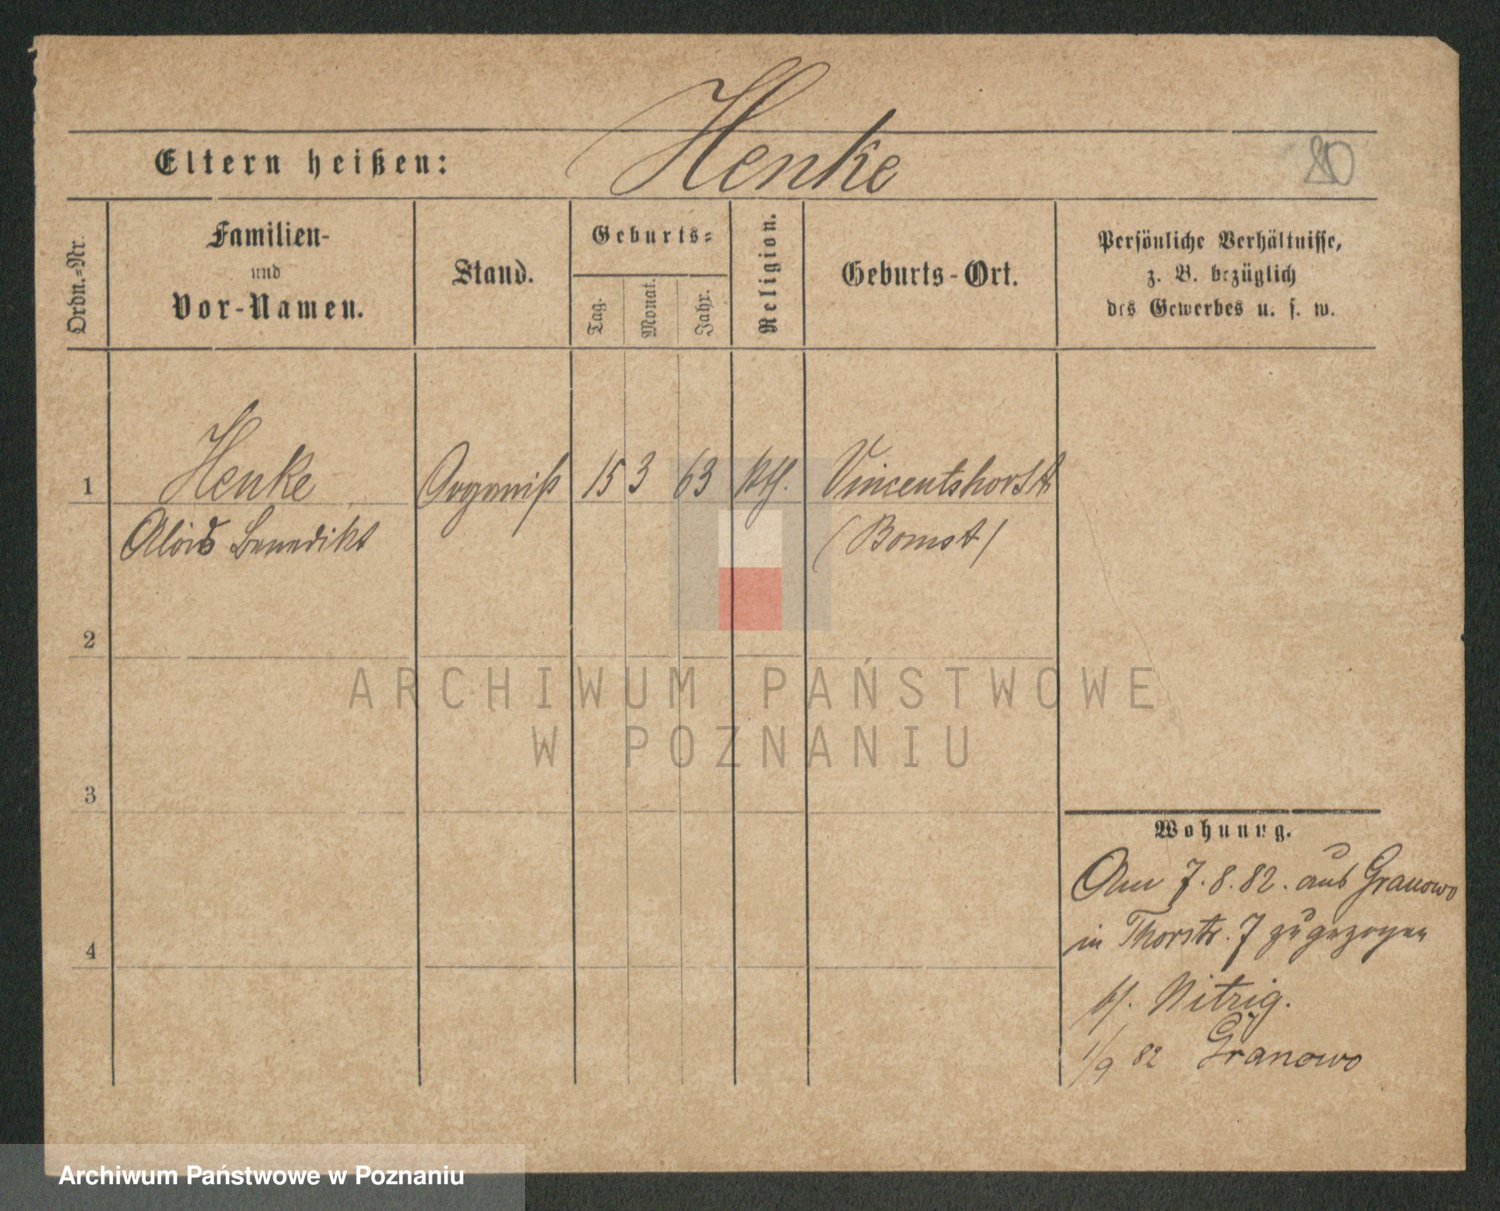 Henke
Eltern heißen:
80
Ordn.=Nr.
Familien-
und
Vor-Namen.
Stand.
Geburts=
Tag.
Monat.
Jahr.
Religion.
Geburts-Ort.
Persönliche Verhältnisse,
z. B. bezüglich
des Gewerbes u. s. w.
1 Henke Organist 15 3 63 kth. Vincentshorst
Alois Benedikt (Bomst)
2
3
4
Wohnung.
Am 7.8.82. aus Granowo
in Thorstr. 7 zugezogen
b/.
1/9 82 Granowo
ARCHIWUM PAŃSTWOWE
W POZNANIU
Archiwum Państwowe w Poznaniu